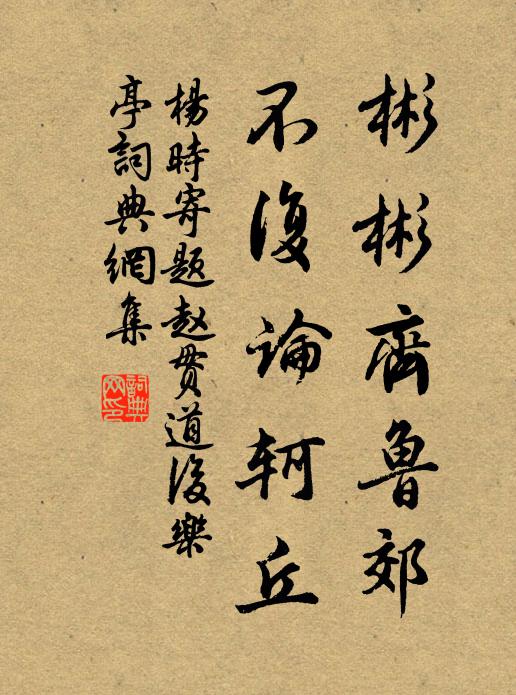 彬彬齊魯郊
不復論軻丘
楊時寄題赵贯道後樂
亭詞典網集
詞典
网印